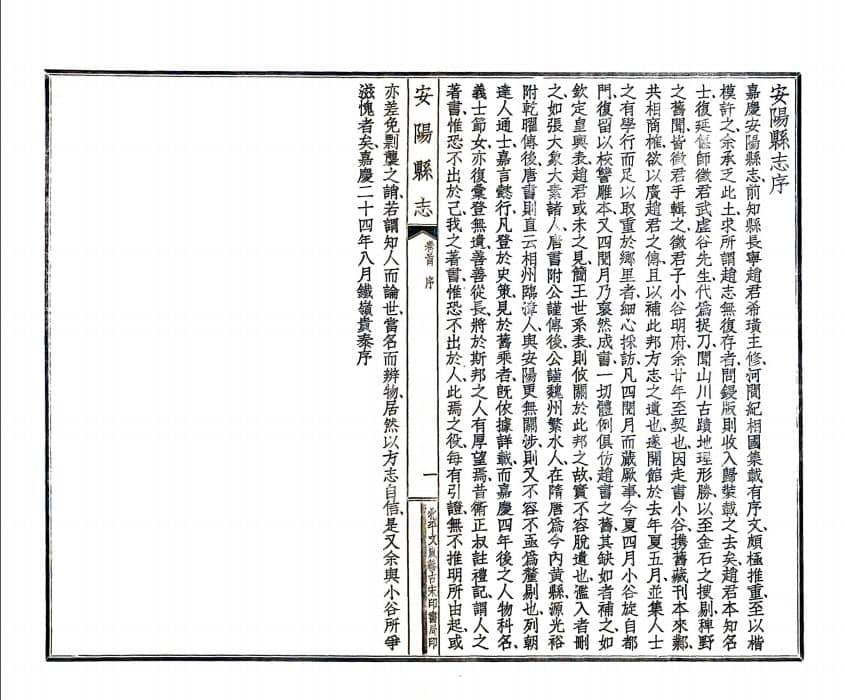 安陽縣志序
嘉慶安陽縣志前知縣長寧趙君希璜主修河間紀相國集載有序文頗極推重至以楷
模許之余承乏此土求所謂趙志無復存者問鋟版則收入歸裝載之去矣趙君本知名
士復延偃師徵君武虛谷先生代爲捉刀聞山川古蹟地理形勝以至金石之搜剔稗野
之舊聞皆徵君手輯之徵君子小谷明府余廿年至契也因走書小谷携舊藏刊本來鄴
共相商榷欲以廣趙君之傳且以補此邦方志之遺也遂開館於去年夏五月並集人士
之有學行而足以取重於鄉里者細心採訪凡四閱月而蕆厥事今夏四月小谷旋自都
門復留以校讐雕本又四閱月乃裒然成書一切體例俱仿趙書之舊其缺如者補之如
欽定皇輿表趙君或未之見簡王世系表則攸關於此邦之故實不容脫遺也濫入者刪
之如張大象大素諸人唐書附公謹傳後公謹魏州繁水人在隋唐爲今內黃縣源光裕
附乾曜傳後唐書則直云相州臨漳人與安陽更無關涉則又不容不亟爲釐剔也列朝
達人通士嘉言懿行凡登於史策見於舊乘者旣依據詳載而嘉慶四年後之人物科名
義士節女亦復彙登無遺善善從長將於斯邦之人有厚望焉昔衛正叔註禮記謂人之
著書惟恐不出於己我之著書惟恐不出於人此焉之役每有引證無不推明所由起或
安陽縣志
卷首 序
一
北平文嵐簃古宋印書局印
亦差免剽襲之誚若謂知人而論世當名而辨物居然以方志自信是又余與小谷所爭
滋愧者矣嘉慶二十四年八月鐵嶺貴泰序